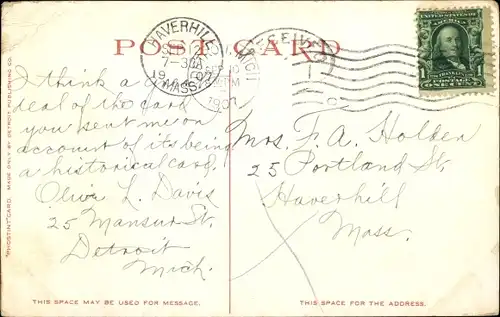 POST CARD
HAVERHILL
7-30
19 07
MASS.
MICH
1907
RECEIVED
1
UNITED STATES OF AMERICA
FRANKLIN
1 ONE CENT 1
I think a great
deal of the card
you sent me on
account of its being
a historical card.
Olive L. Davis
25 Mansur St.
Detroit
Mich.
Mrs. F. A. Holden
25 Portland St.
Haverhill
Mass.
"PHOSTINT" CARD. MADE ONLY BY DETROIT PUBLISHING CO.
THIS SPACE MAY BE USED FOR MESSAGE.
THIS SPACE IS FOR THE ADDRESS.